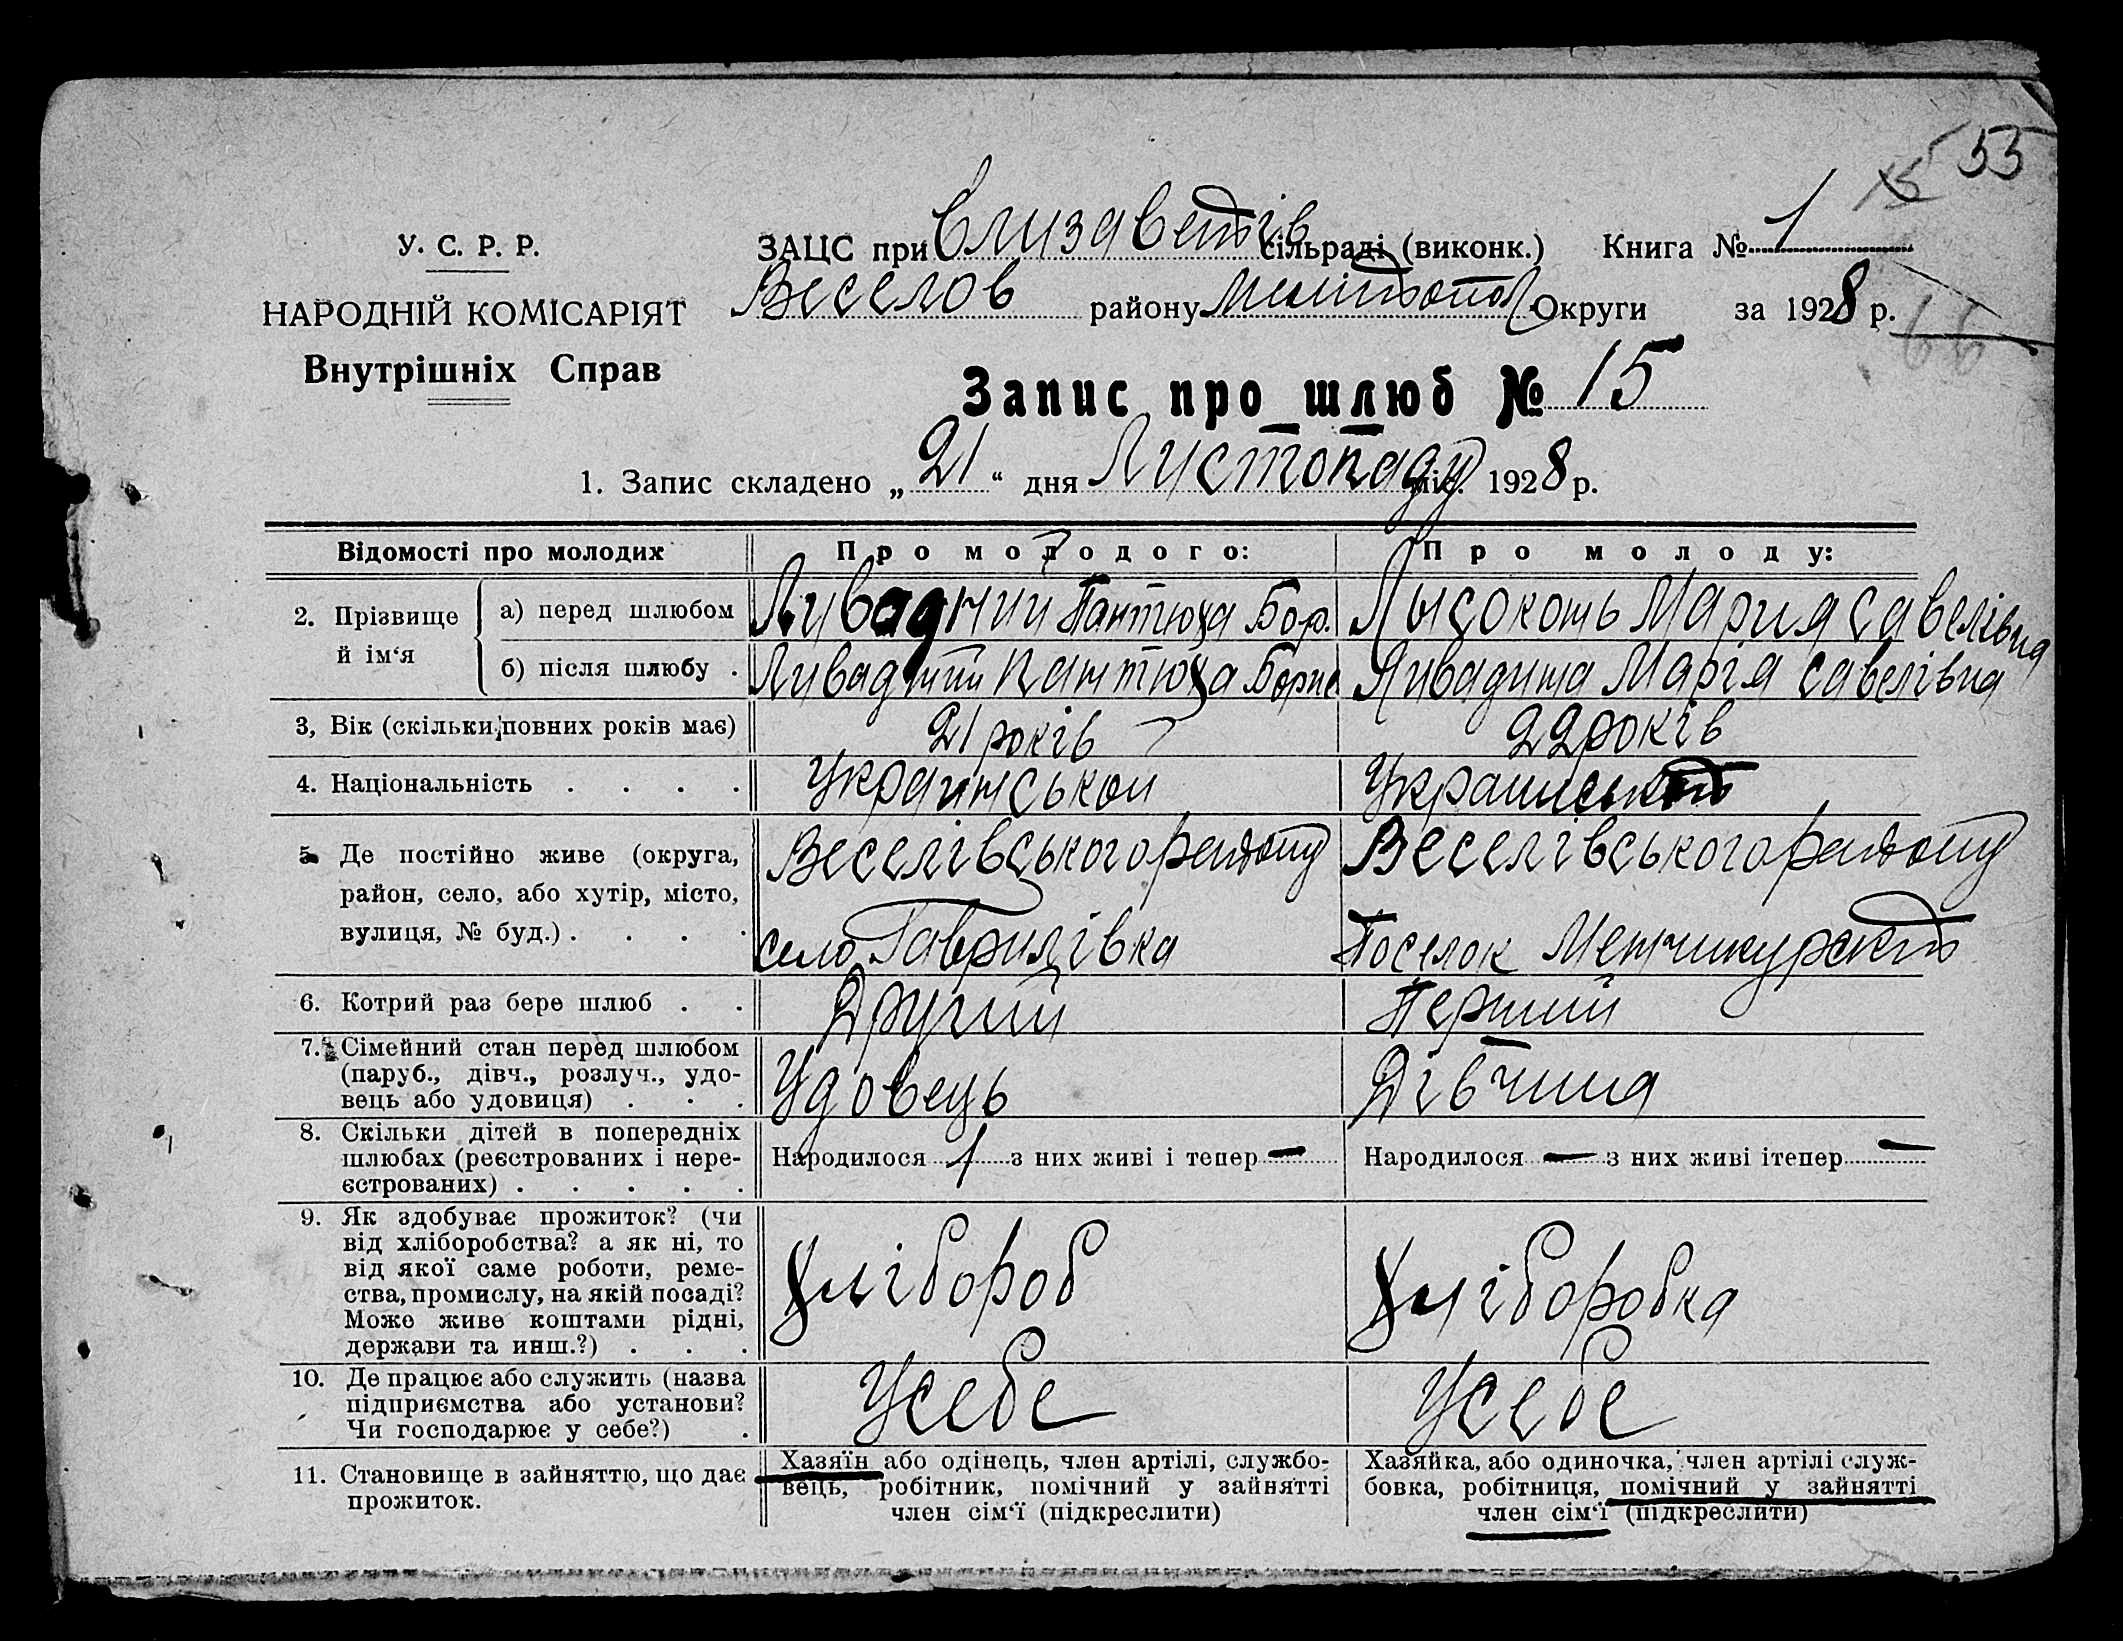 55
У. С. Р. Р.
НАРОДНІЙ КОМІСАРІЯТ
Внутрішніх Справ
ЗАЦС при Єлизаветів сільраді (виконк.) Книга № 1
Веселов району Мелітопол Округи за 1928 р.
66
Запис про шлюб № 15
1. Запис складено „21“ дня Листопаду міс. 1928 р.
Відомості про молодих Про молодого: Про молоду:
2. Прізвище й ім‘я
а) перед шлюбом Ливадний Пантюха Бор. Лысоконь Мария Савелівна
б) після шлюбу . Ливадний Пантюха Борис Ливадина Марія Савелівна
3, Вік (скільки повних років має) 21 років 22 років
4. Національність . . . . Украинськои Украинської
5. Де постійно живе (округа, Веселівського району Веселівського району
район, село, або хутір, місто,
вулиця, № буд.) . . . . село Гаврилівка Поселок Менчикури
6. Котрий раз бере шлюб . . Другий Перший
7. Сімейний стан перед шлюбом
(паруб., дівч., розлуч., удо-
вець або удовиця) . . . Удовець Дівчина
8. Скільки дітей в попередніх
шлюбах (реєстрованих і нере- Народилося 1 з них живі і тепер — Народилося — з них живі ітепер —
єстрованих) . . . . .
9. Як здобуває прожиток? (чи
від хліборобства? а як ні, то
від якої саме роботи, реме-
ства, промислу, на якій посаді? Хлібороб Хліборобка
Може живе коштами рідні,
держави та инш.?) . . .
10. Де працює або служить (назва
підприємства або установи? Усебе Усебе
Чи господарює у себе?) .
11. Становище в зайняттю, що дає
прожиток.
Хазяїн або одінець, член артілі, службо-
вець, робітник, помічний у зайнятті
член сім‘ї (підкреслити)
Хазяйка, або одиночка, член артілі служ-
бовка, робітниця, помічний у зайнятті
член сім‘ї (підкреслити)